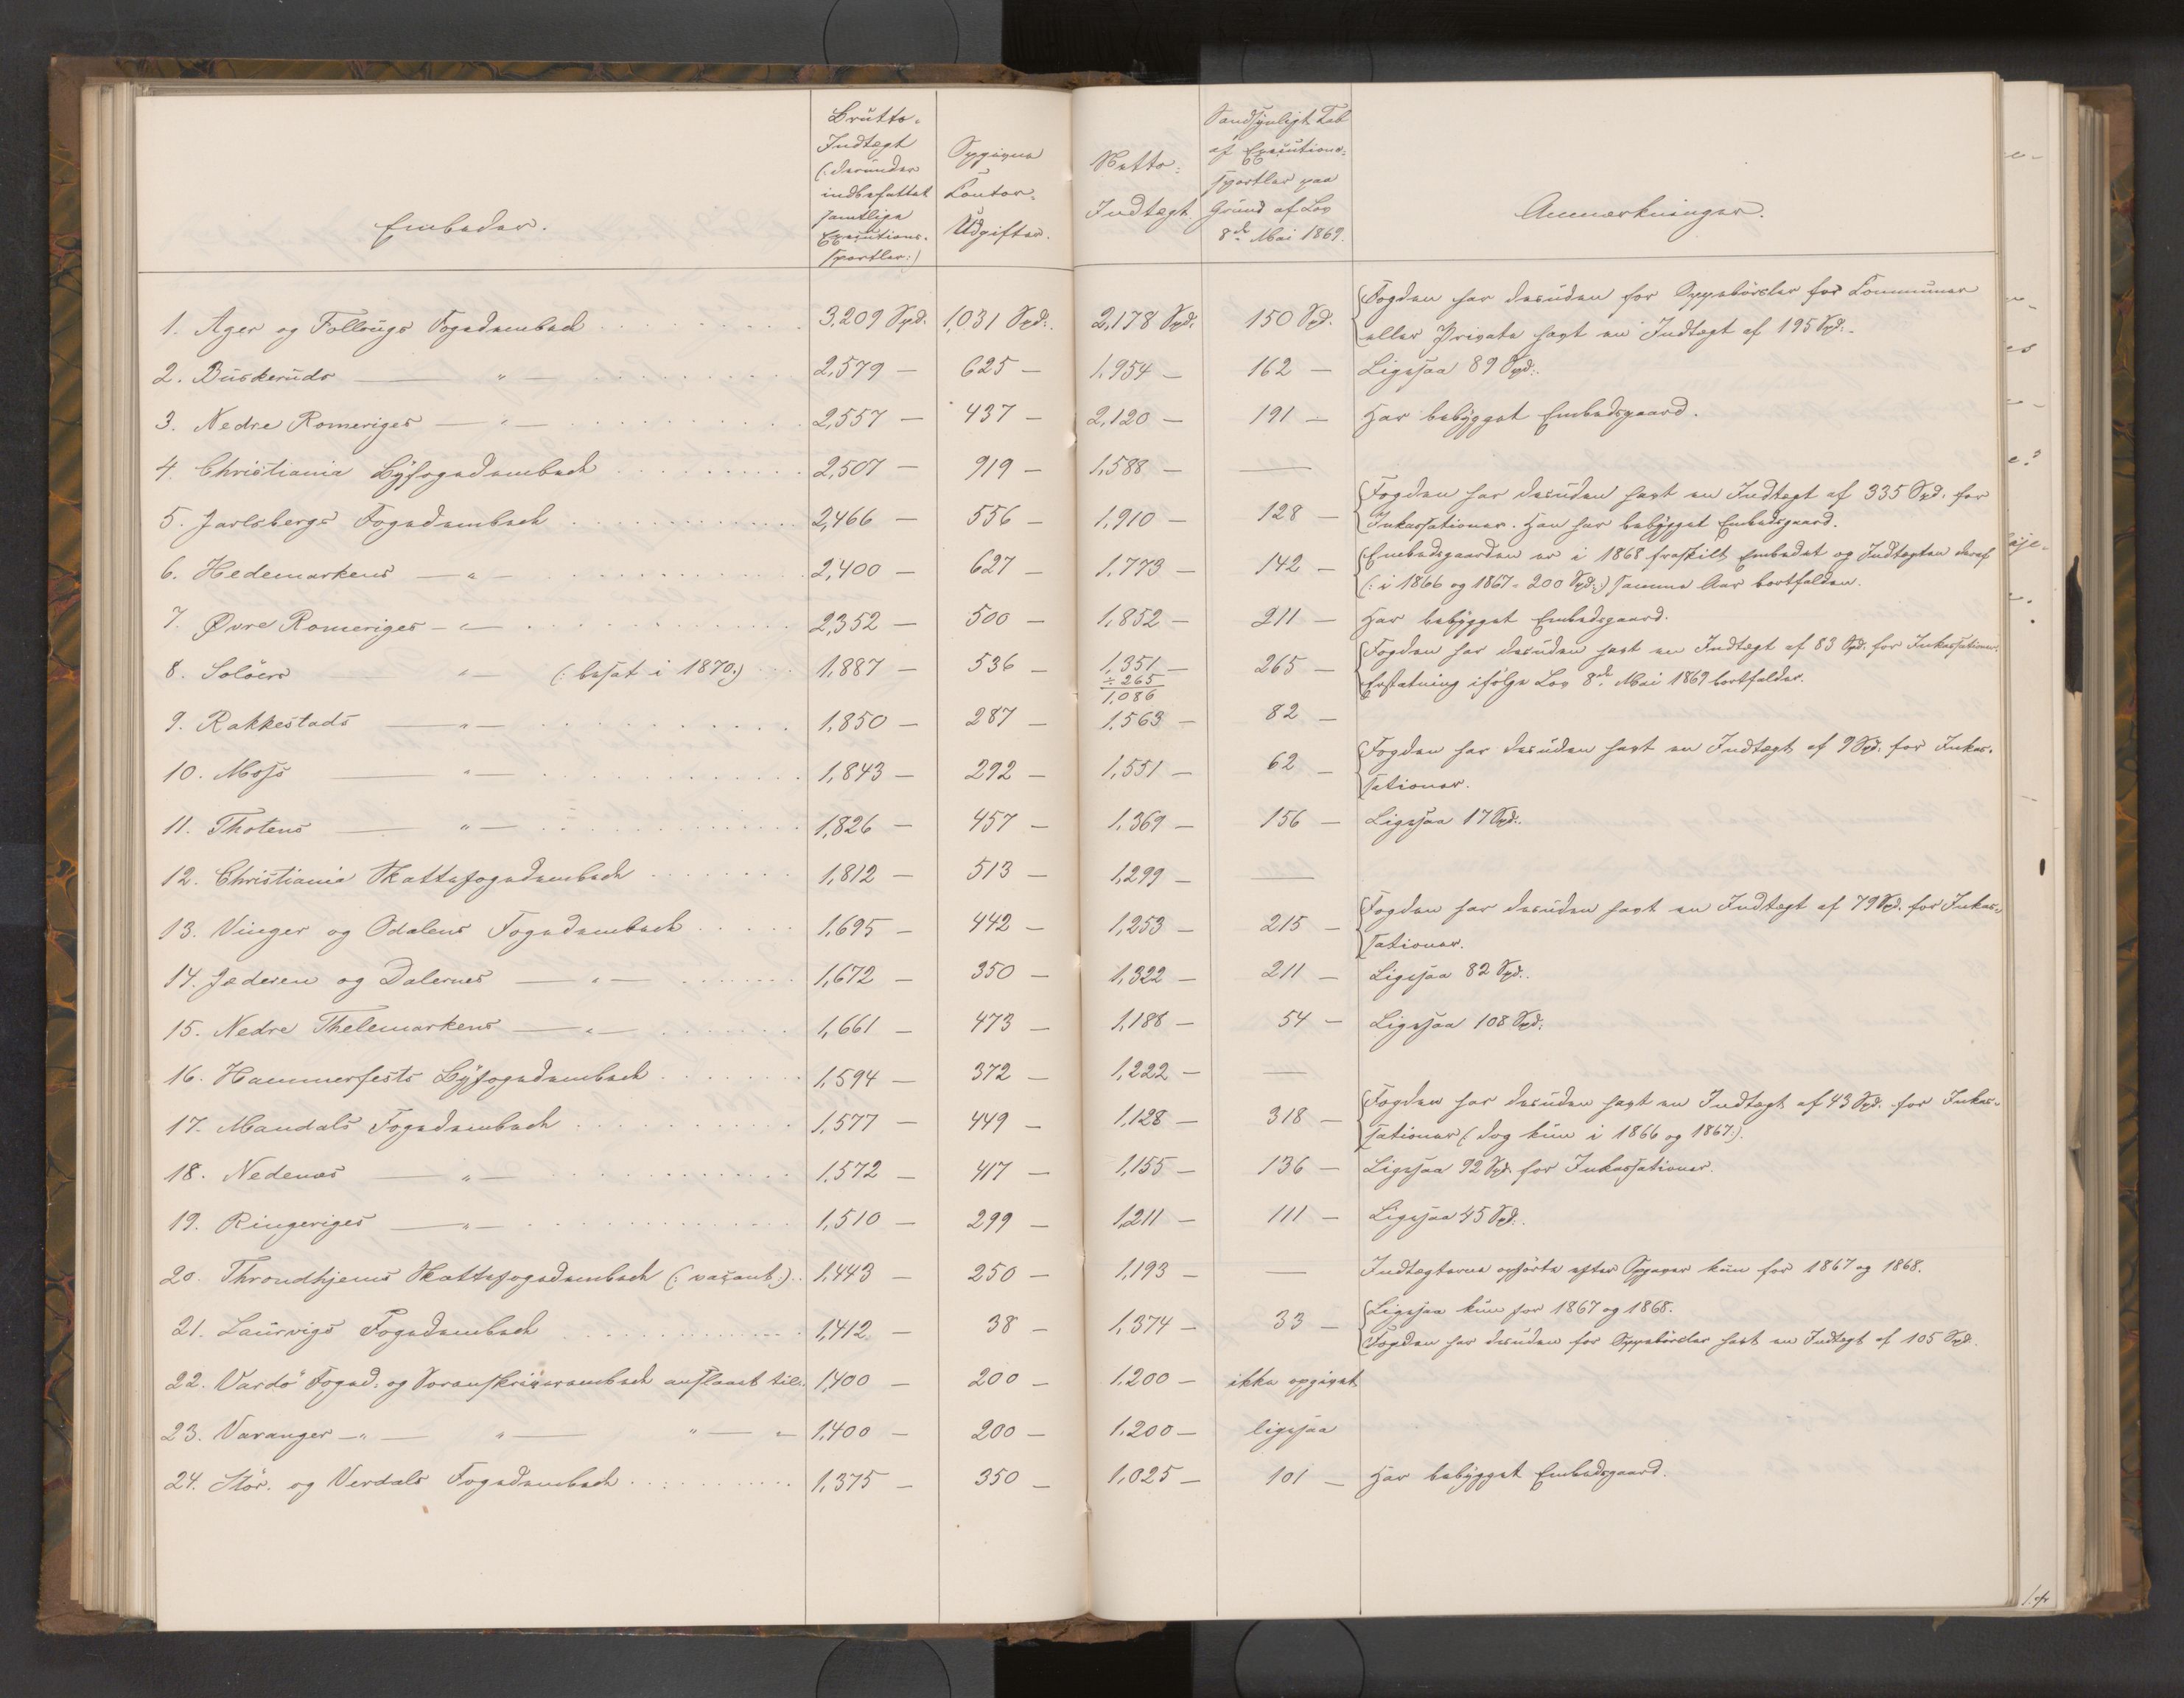 Embeder.
Brutto-
Indtægt
(: derunder
indbefattet
samtlige
Exections-
sportler:)
Opgivne
Contor-
Udgifter.
Netto-
Indtægt.
Sandsynligt Tab
af Executions-
sportler paa
Grund af Lov
8de Mai 1869.
Anmærkninger.
1. Ager og Follougs Fogedembede 3,209 Spd. 1,031 Spd. 2,178 Spd. 150 Spd. Fogden har desuden for Oppebörsler for Communer
eller Private havt en Indtægt af 195 Spd.
2. Buskeruds — " — 2,579 — 625 — 1,954 — 162 — Ligesaa 89 Spd.
3. Nedre Romeriges — " — 2,557 — 437 — 2,120 — 191 — Har bebygget Embedsgaard.
4. Christiania Byfogedembede 2,507 — 919 — 1,588 — —
5. Jarlsbergs Fogedembede 2,466 — 556 — 1,910 — 128 — Fogden har desuden havt en Indtægt af 335 Spd. for
Inkassationer. Han har bebygget Embedsgaard.
6. Hedemarkens — " — 2,400 — 627 — 1,773 — 142 — Embedsgaarden er i 1868 fraskilt Embedet og Indtægten deraf
(: i 1866 og 1867 = 200 Spd.:) samme Aar bortfalden.
7. Øvre Romeriges — " — 2,352 — 500 — 1,852 — 211 — Har bebygget Embedsgaard.
8. Solöers — " — (: besat i 1870:) 1,887 — 536 — 1,351 — 265 — Fogden har desuden havt en Indtægt af 83 Spd. for Inkassationer.
÷ 265
1,086
Erstatning ifölge Lov 8de Mai 1869 bortfalder.
9. Rakkestads — " — 1,850 — 287 — 1,563 — 82 —
10. Moss — " — 1,843 — 292 — 1,551 — 62 — Fogden har desuden havt en Indtægt af 9 Spd. for Inkas-
sationer.
11. Thotens — " — 1,826 — 457 — 1,369 — 156 — Ligesaa 17 Spd.
12. Christiania Skattefogedembede 1,812 — 513 — 1,299 — —
13. Vinger og Odalens Fogedembede 1,695 — 442 — 1,253 — 215 — Fogden har desuden havt en Indtægt af 79 Spd. for Inkas-
sationer.
14. Jæderen og Dalernes — " — 1,672 — 350 — 1,322 — 211 — Ligesaa 82 Spd.
15. Nedre Thelemarkens — " — 1,661 — 473 — 1,188 — 54 — Ligesaa 108 Spd.
16. Hammerfests Byfogedembede 1,594 — 372 — 1,222 — —
17. Mandals Fogedembede 1,577 — 449 — 1,128 — 318 — Fogden har desuden havt en Indtægt af 43 Spd. for Inkas-
sationer (: dog kun i 1866 og 1867:).
18. Nedenæs — " — 1,572 — 417 — 1,155 — 136 — Ligesaa 92 Spd. for Inkassationer.
19. Ringeriges — " — 1,510 — 299 — 1,211 — 111 — Ligesaa 45 Spd.
20. Throndhjems Skattefogedembede (: vacant:) 1,443 — 250 — 1,193 — — Indtægterne opförte efter Opgaver kun for 1867 og 1868.
21. Laurvigs Fogedembede 1,412 — 38 — 1,374 — 33 — Ligesaa kun for 1867 og 1868.
Fogden har desuden for Oppebörsler havt en Indtægt af 105 Spd.
22. Vardö Foged- og Sorenskriverembede anslaaet til 1,400 — 200 — 1,200 — ikke opgivet
23. Varanger — " — " — " — " 1,400 — 200 — 1,200 — ligesaa
24. Stör- og Verdals Fogedembede 1,375 — 350 — 1,025 — 101 — Har bebygget Embedsgaard.